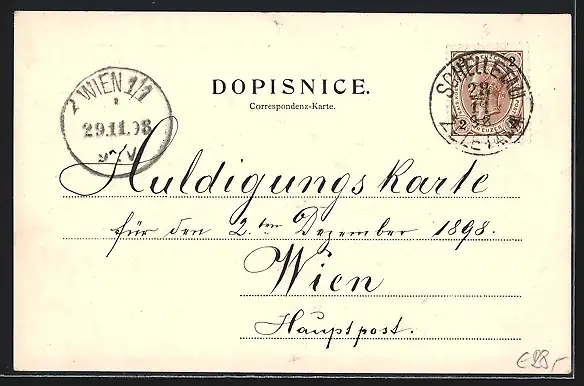 DOPISNICE.
Correspondenz-Karte.
WIEN 1/1
29.11.98
SCHELLETAU
28
11
98
ŽELETAVA
2
KREUZER
Huldigungskarte
für den 2.ten Dezember 1898.
Wien
Hauptpost.